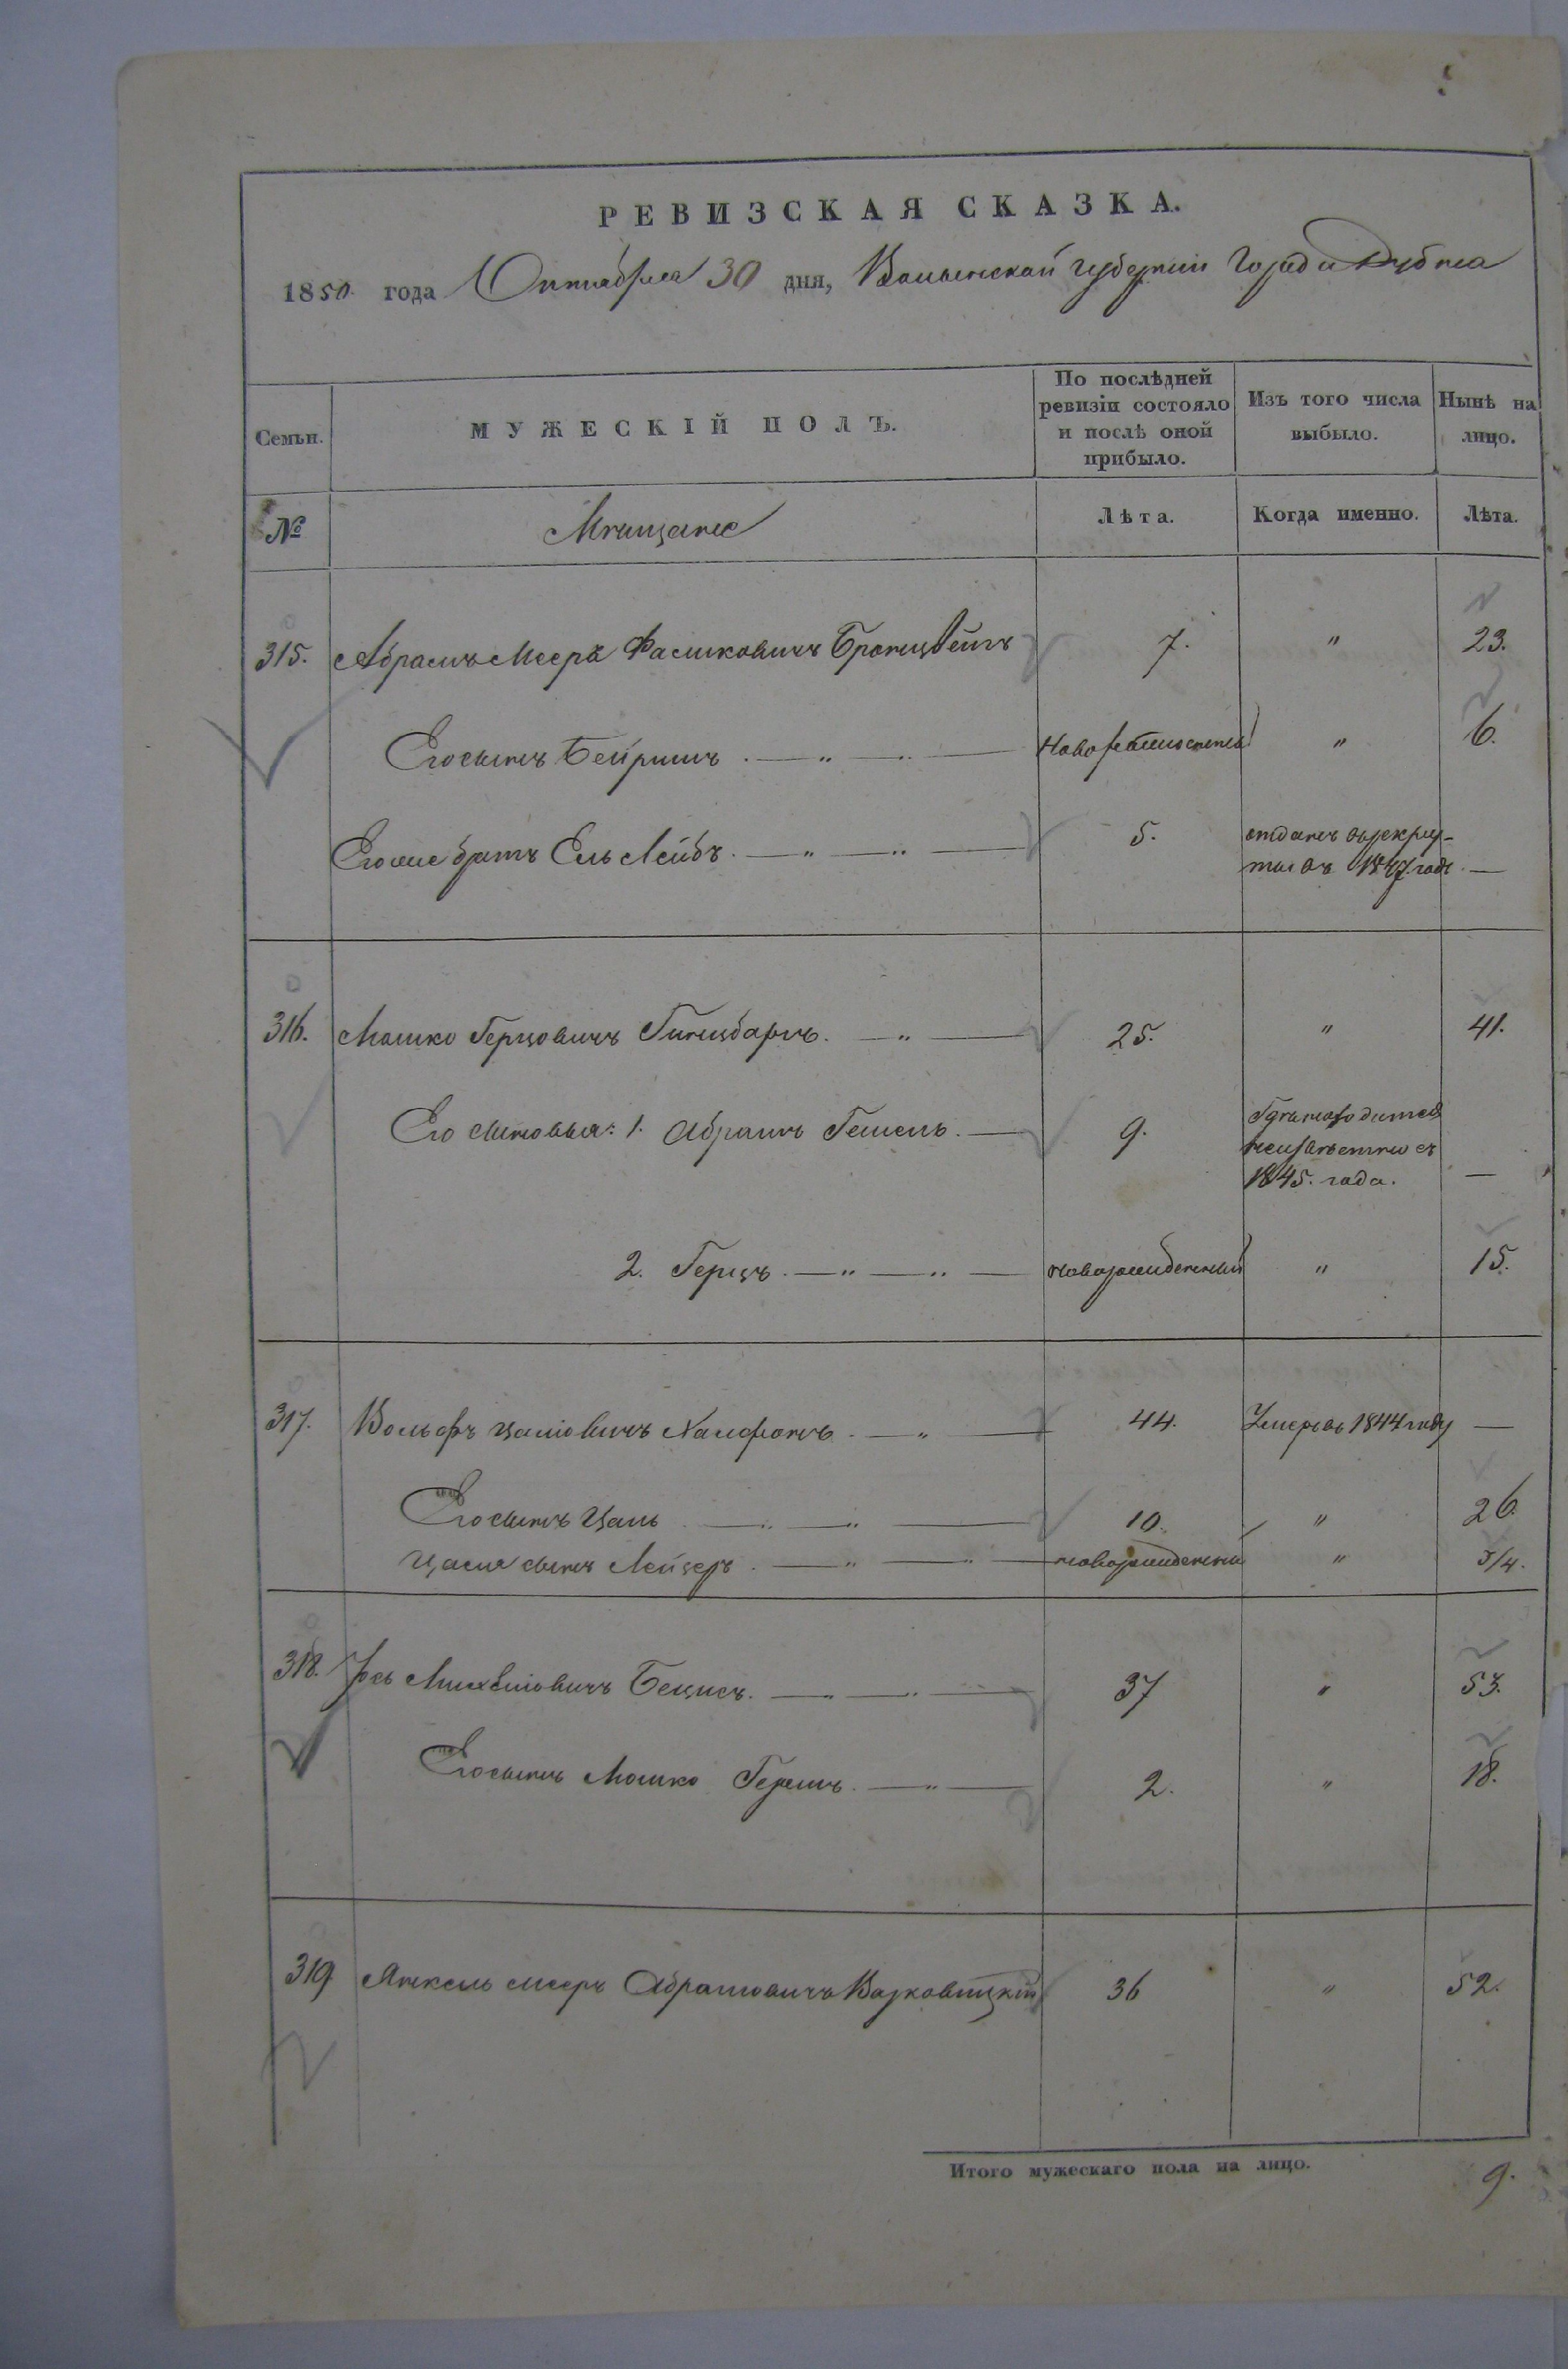 РЕВИЗСКАЯ СКАЗКА.
1850 года Октября 30 дня, Волынской губернии Города Дубна
Семьи.
МУЖЕСКІЙ ПОЛЪ.
По послѣдней
ревизіи состояло
и послѣ оной
прибыло.
Изъ того числа
выбыло.
Нынѣ на
лицо.
№
Мещане
Лѣта.
Когда именно.
Лѣта.
315. Абрамъ Мееръ 7. " 23.
Его сынъ Бейришъ . — " — " — " 6.
Его же братъ Ель Лейбъ . — " — " — 5. отданъ въ рекру-
ты въ 1847 годѣ . —
316. Мошко Герцовичъ Гинцбаргъ . — " — 25. " 41.
Его сыновья: 1. Абрамъ Гешель . — 9.
неизвестно съ
1845. года. —
2. Герцъ . — " — " — новорожденный " 15.
317. Вольфъ Цалiовичъ . — " — 44. Умеръ въ 1844 году —
Его сынъ Цаль — " — " — 10. " 26.
Цаля сынъ Лейзеръ . — " — " — новорожденный " 3/4.
318. Іось Бецисъ . — " — " — 37 " 53.
Его сынъ Мошко Гершъ . — " — 2. " 18.
319 Янкель Мееръ Абрамовичъ 36 " 52.
Итого мужескаго пола на лицо. 9.